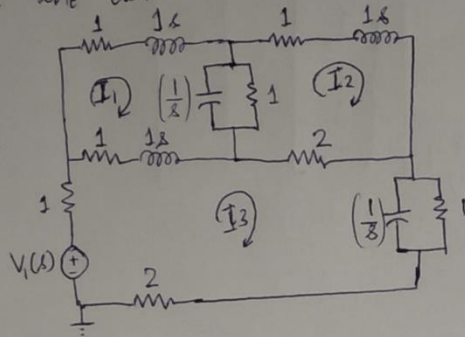 1 1s 1 1s
I1 (1/s) 1 I2
1 1s 2
1 I3 (1/s)
V1(s) 2